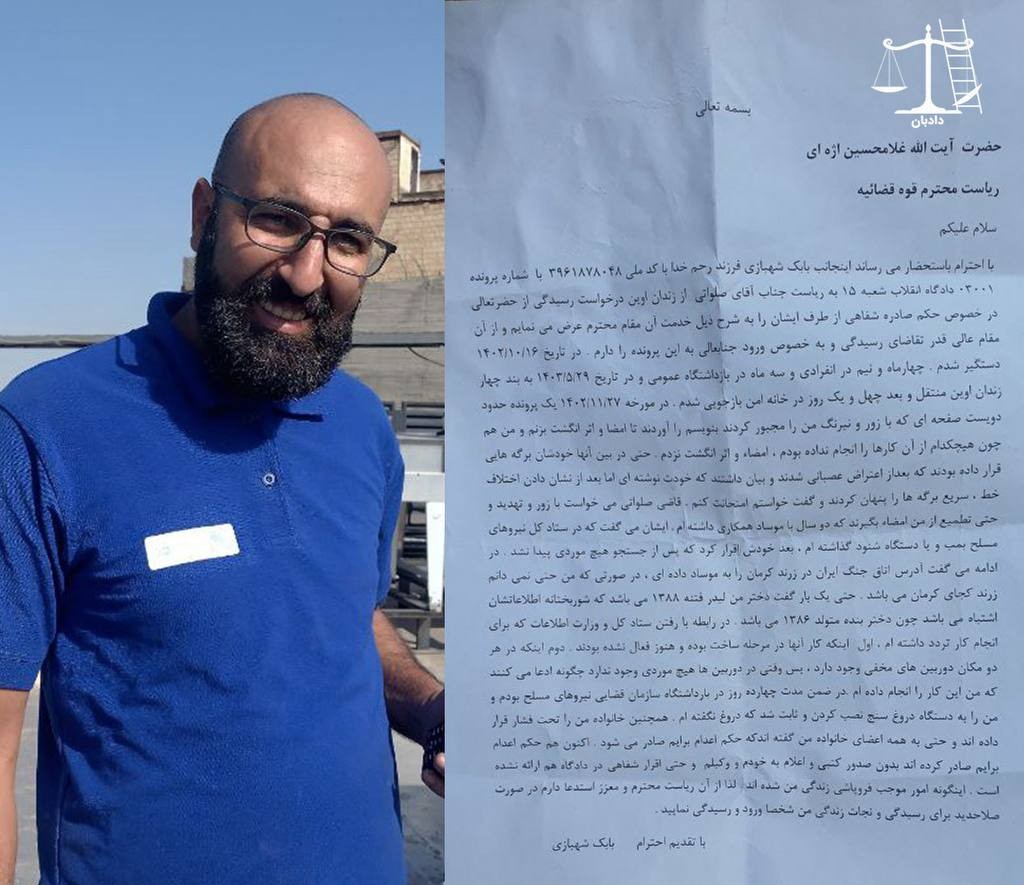 دادبان
بسمه تعالی
حضرت آیت الله غلامحسین اژه ای
ریاست محترم قوه قضائیه
سلام علیکم
با احترام باستحضار می رساند اینجانب بابک شهبازی فرزند رحم خدا با کد ملی ۳۹۶۱۸۷۸۰۴۸ با شماره پرونده
۰۳۰۰۱ دادگاه انقلاب شعبه ۱۵ به ریاست جناب آقای صلواتی از زندان اوین درخواست رسیدگی از حضرتعالی
در خصوص حکم صادره شفاهی از طرف ایشان را به شرح ذیل خدمت آن مقام محترم عرض می نمایم و از آن
مقام عالی قدر تقاضای رسیدگی و به خصوص ورود جنابعالی به این پرونده را دارم . در تاریخ ۱۴۰۲/۱۰/۱۶
دستگیر شدم . چهارماه و نیم در انفرادی و سه ماه در بازداشتگاه عمومی و در تاریخ ۱۴۰۳/۵/۲۹ به بند چهار
زندان اوین منتقل و بعد چهل و یک روز در خانه امن بازجویی شدم . در مورخه ۱۴۰۲/۱۱/۲۷ یک پرونده حدود
دویست صفحه ای که با زور و نیرنگ من را مجبور کردند بنویسم را آوردند تا امضا و اثر انگشت بزنم و من هم
چون هیچکدام از آن کارها را انجام نداده بودم ، امضاء و اثر انگشت نزدم . حتی در بین آنها خودشان برگه هایی
قرار داده بودند که بعداز اعتراض عصبانی شدند و بیان داشتند که خودت نوشته ای اما بعد از نشان دادن اختلاف
خط ، سریع برگه ها را پنهان کردند و گفت خواستم امتحانت کنم . قاضی صلواتی می خواست با زور و تهدید و
حتی تطمیع از من امضاء بگیرند که دو سال با موساد همکاری داشته ام . ایشان می گفت که در ستاد کل نیروهای
مسلح بمب و یا دستگاه شنود گذاشته ام ، بعد خودش اقرار کرد که پس از جستجو هیچ موردی پیدا نشد . در
ادامه می گفت آدرس اتاق جنگ ایران در زرند کرمان را به موساد داده ای ، در صورتی که من حتی نمی دانم
زرند کجای کرمان می باشد . حتی یک بار گفت دختر من لیدر فتنه ۱۳۸۸ می باشد که شوربختانه اطلاعاتشان
اشتباه می باشد چون دختر بنده متولد ۱۳۸۶ می باشد . در رابطه با رفتن ستاد کل و وزارت اطلاعات که برای
انجام کار تردد داشته ام ، اول اینکه کار آنها در مرحله ساخت بوده و هنوز فعال نشده بودند . دوم اینکه در هر
دو مکان دوربین های مخفی وجود دارد ، پس وقتی در دوربین ها هیچ موردی وجود ندارد چگونه ادعا می کنند
که من این کار را انجام داده ام .در ضمن مدت چهارده روز در بازداشتگاه سازمان قضایی نیروهای مسلح بودم و
من را به دستگاه دروغ سنج نصب کردن و ثابت شد که دروغ نگفته ام . همچنین خانواده من را تحت فشار قرار
داده اند و حتی به همه اعضای خانواده من گفته اندکه حکم اعدام برایم صادر می شود . اکنون هم حکم اعدام
برایم صادر کرده اند بدون صدور کتبی و اعلام به خودم و وکیلم و حتی اقرار شفاهی در دادگاه هم ارائه نشده
است . اینگونه امور موجب فروپاشی زندگی من شده اند. لذا از آن ریاست محترم و معزز استدعا دارم در صورت
صلاحدید برای رسیدگی و نجات زندگی من شخصا ورود و رسیدگی نمایید .
با تقدیم احترام بابک شهبازی